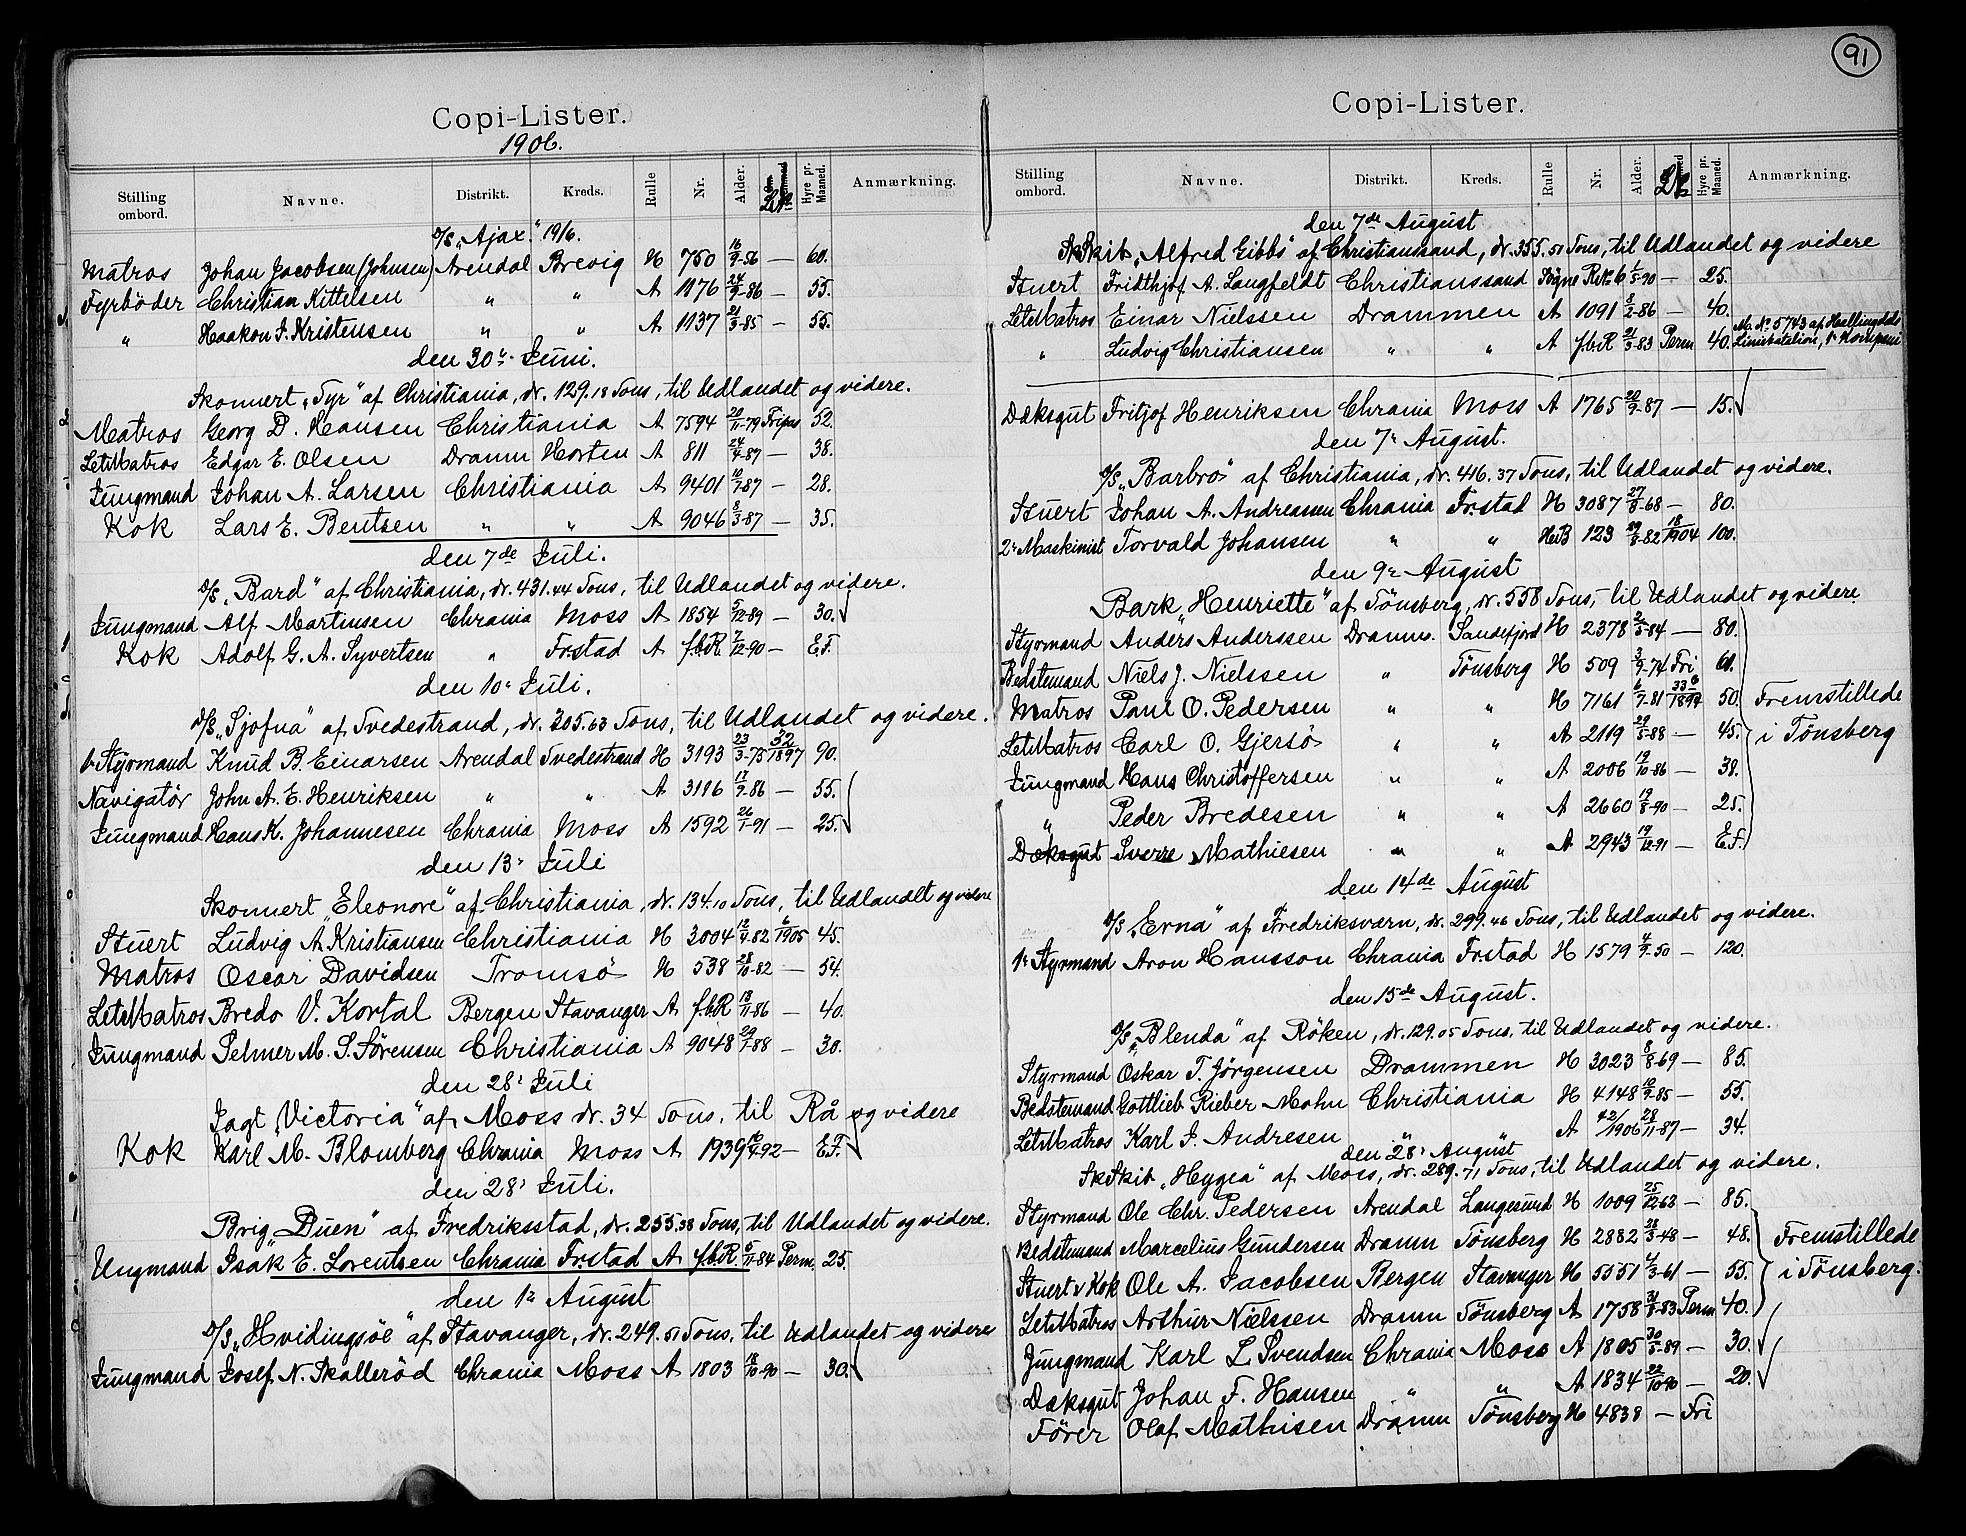 91
Copi-Lister.
1906.
Stilling ombord. Navne. Distrikt. Kreds. Rulle Nr. Alder. Hyre pr. Maaned. Anmærkning.
D/S „Ajax“ 19/6.
Matros Johan Jacobsen (Johnsen) Arendal Brevig H 750 16/9-56 — 60.
Fyrbøder Christian Kittelsen „ „ A 1176 24/9-86 — 55.
„ Haakon J. Kristensen „ „ A 1137 21/3-85 — 55.
den 30te Juni.
Skonnert „Tyr“ af Christiania, dr. 129.18 Tons, til Udlandet og videre.
Matros Georg D. Hansen Christiania A 7594 20/11-79 Fripas 52.
LetMatros Edgar E. Olsen Dramn Horten A 811 24/4-87 — 38.
Jungmand Johan A. Larsen Christiania A 9401 10/1-87 — 28.
Kok Lars E. Bentsen „ „ A 9046 8/3-87 — 35.
den 7de Juli.
D/S „Bard“ af Christiania, dr. 431.44 Tons, til Udlandet og videre.
Jungmand Alf Martinsen Chrania Moss A 1854 5/12-89 — 30.
Kok Adolf G. A. Syvertsen „ Frstad A f.b.R. 7/12-90 — E.F.
den 10de Juli.
D/S „Sjofna“ af Tvedestrand, dr. 205.63 Tons, til Udlandet og videre.
1 Styrmand Knud B. Einarsen Arendal Tvedestrand H 3193 23/3-75 32/1897 90.
Navigatør John A. E. Henriksen „ „ A 3116 17/9-86 — 55.
Jungmand Hans K. Johannesen Chrania Moss A 1592 26/1-91 — 25.
den 13de Juli
Skonnert „Eleonore“ af Christiania, dr. 134.10 Tons, til Udlandet og videre
Stuert Ludvig A. Kristiansen Christiania H 3004 12/4-82 6/1905 45.
Matros Oscar Davidsen Tromsø H 538 28/10-82 — 54.
LetMatros Bredo V. Kortal Bergen Stavanger A f.b.R 18/11-86 — 40.
Jungmand Selmer M. S. Sørensen Christiania A 9048 29/1-88 — 30.
den 28de Juli
Jagt „Victoria“ af Moss dr. 34 Tons, til Rå og videre
Kok Karl M. Blomberg Chrania Moss A 1939 16/4-92 — E.F.
den 28de Juli.
Brig „Duen“ af Fredriksstad, dr. 255.38 Tons, til Udlandet og videre.
Ungmand Isak E. Lorentsen Chrania Frstad A f.b.R. 5/11-84 Perm. 25.
den 1ste August
D/S „Hvidingsøe“ af Stavanger, dr. 249.51 Tons, til Udlandet og videre
Jungmand Josef N. Skallerød Chrania Moss A 1803 18/10-90 — 30.
Copi-Lister.
Stilling ombord. Navne. Distrikt. Kreds. Rulle Nr. Alder. Hyre pr. Maaned. Anmærkning.
den 7de August
SkSkib „Alfred Gibbs“ af Christianssand, dr. 355.51 Tons, til Udlandet og videre
Stuert Fridthjof A. Langfeldt Christianssand Søgne 6 1/5-90 — 25.
LetMatros Einar Nielssen Drammen A 1091 8/2-86 — 40.
„ Ludvig Christiansen „ „ A f.b.R 21/3-83 Perm 40. M. No 5743 af Hallingdals
Kompani
Dæksgut Fritjof Henriksen Chrania Moss A 1765 20/9-87 — 15.
den 7de August.
D/S „Barbro“ af Christiania, dr. 416.37 Tons, til Udlandet og videre.
Stuert Johan A. Andreassen Chrania Frstad H 3087 27/8-68 — 80.
2de Maskinist Torvald Johansen „ „ HB 123 29/8-82 18/1904 100.
den 9de August
Bark „Henriette“ af Tønsberg, dr. 558 Tons, til Udlandet og videre.
Styrmand Anders Anderssen Dramn. Sandefjord H 2378 2/5-84 — 80.
Bedstemand Niels J. Nielssen „ Tønsberg H 509 3/9-74 Fri 60.
Matros Paul O. Pedersen „ „ H 7161 6/7-81 50. Fremstillede
LetMatros Carl O. Gjersø „ „ A 2119 29/5-88 — 45. i Tønsberg
Jungmand Hans Christoffersen „ „ A 2006 12/10-86 — 38.
„ Peder Bredesen „ „ A 2660 19/8-90 — 25.
Dæksgut Sverre Mathiesen „ „ A 2943 19/12-91 — E.F.
den 14de August
D/S „Erna“ af Fredriksværn, dr. 299.46 Tons, til Udlandet og videre.
1ste Styrmand Aron Hansson Chrania Frstad H 1579 4/9-50 — 120.
den 15de August.
D/S „Blenda“ af Röken, dr. 129.05 Tons, til Udlandet og videre.
Styrmand Oskar T. Jørgensen Drammen H 3023 8/8-69 — 85.
Bedstemand Gottlieb Rieber Mohn Christiania H 4148 10/9-85 — 55.
LetMatros Karl J. Andresen A 42/1906 28/11-87 — 34.
den 28de August
SkSkib „Hygea“ af Moss, dr. 289.71 Tons, til Udlandet og videre.
Styrmand Ole Chr. Pedersen Arendal Langesund H 1009 25/12-62 — 85.
Bedstemand Marcelius Gundersen Dramn Tønsberg H 2832 26/3-48 — 48. Fremstillede
Stuert & Kok Ole A. Jacobsen Bergen Stavanger H 5551 4/3-61 — 55. i Tønsberg.
LetMatros Arthur Nielssen Dramn Tønsberg A 1758 31/8-83 Perm 40.
Jungmand Karl L. Svendsen Chrania Moss A 1805 30/5-89 — 30.
Dæksgut Johan F. Hansen „ „ A 1834 22/10-90 — 20.
Fører Olaf Mathisen Dramn Tønsberg H 4838 — Fri